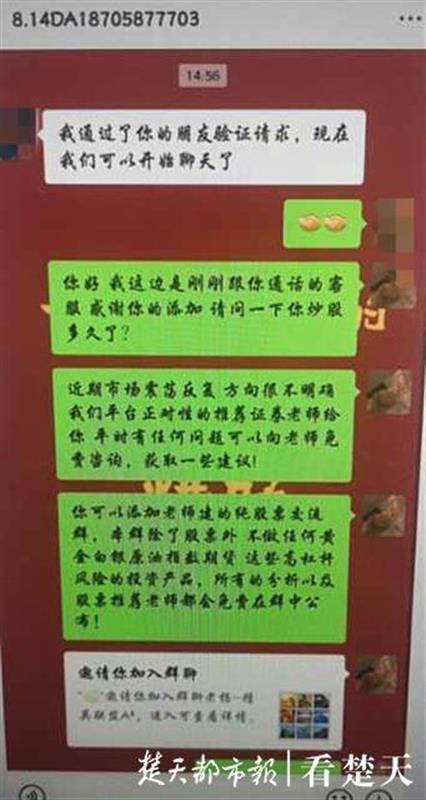 8.14DA18705877703
14:56
我通过了你的朋友验证请求，现在
我们可以开始聊天了
你好 我这边是刚刚跟你通话的客
服 感谢你的添加 请问一下你炒股
多久了？
近期市场震荡反复 方向很不明确
我们平台正对性的推荐证券老师给
你 平时有任何问题可以向老师免
费咨询，获取一些建议!
你可以添加老师建的纯股票交流
群，本群除了股票外 不做任何黄
金白银原油指数期货 这些高杠杆
风险的投资产品，所有的分析以及
股票推荐老师都会免费在群中公
布！
邀请你加入群聊
邀请你加入群聊老杨-精
英联盟 ，进入可查看详情。
楚天都市報 看楚天